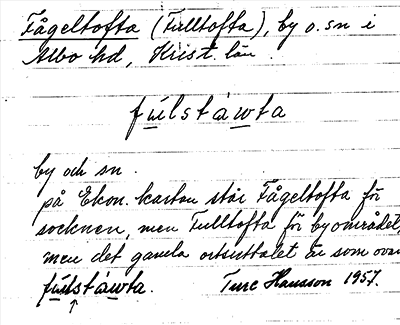 Fågeltofta (Fulltofta), by o. sn i
Albo hd, Krist. län.
fúlstàwta
by och sn.
på Ekon. kartan står Fågeltofta för
socknen, men Fulltofta för byområdet,
men det gamla ortsuttalet är som ovan
fúlstàwta. Ture Hansson 1957.